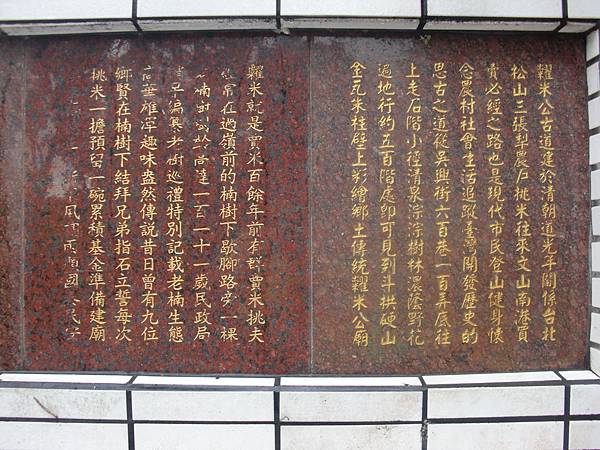 糶米公古道建於清朝道光年間係台北
松山三張犁農戶挑米往來文山南港買
賣必經之路也是現代市民登山健身懷
念農村社會生活追蹤臺灣開發歷史的
思古之道從吳興街六百巷一百弄底往
上走石階小徑清泉淙淙樹林濃蔭野花
遍地行約五百階處即可見到斗拱硬山
金瓦朱柱壁上彩繪鄉土傳統糶米公廟
糶米就是賣米百餘年前有群賣米挑夫
常在過嶺前的楠樹下歇腳路旁一棵
楠樹樹齡高達一百一十一歲民政局
編纂老樹巡禮特別記載老楠生態
華雄渾趣味盎然傳說昔日曾有九位
鄉賢在楠樹下結拜兄弟指石立誓每次
挑米一擔預留一碗累積基金準備建廟
風調雨順國泰民安